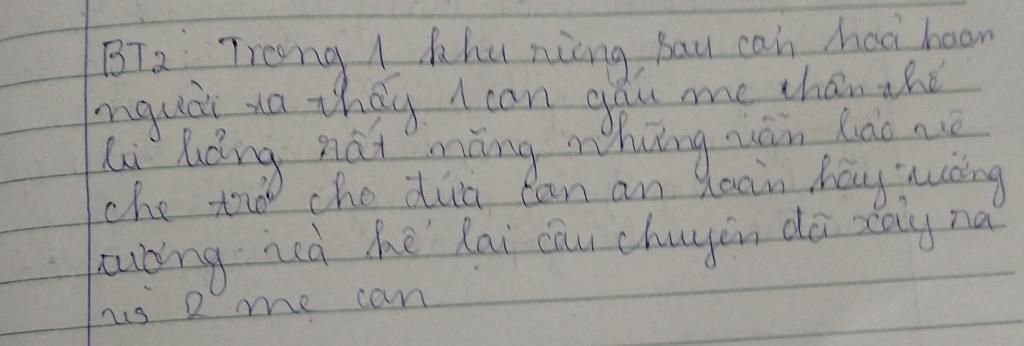 BT2: Trong 1 khu rừng sau cơn hoả hoạn
người ta thấy 1 con gấu mẹ thân thể
lở loáng rất nặng nhưng vẫn cố vẽ
che trở cho đứa con an toàn hãy tưởng
tượng và kể lại câu chuyện đã xảy ra
với 2 mẹ con